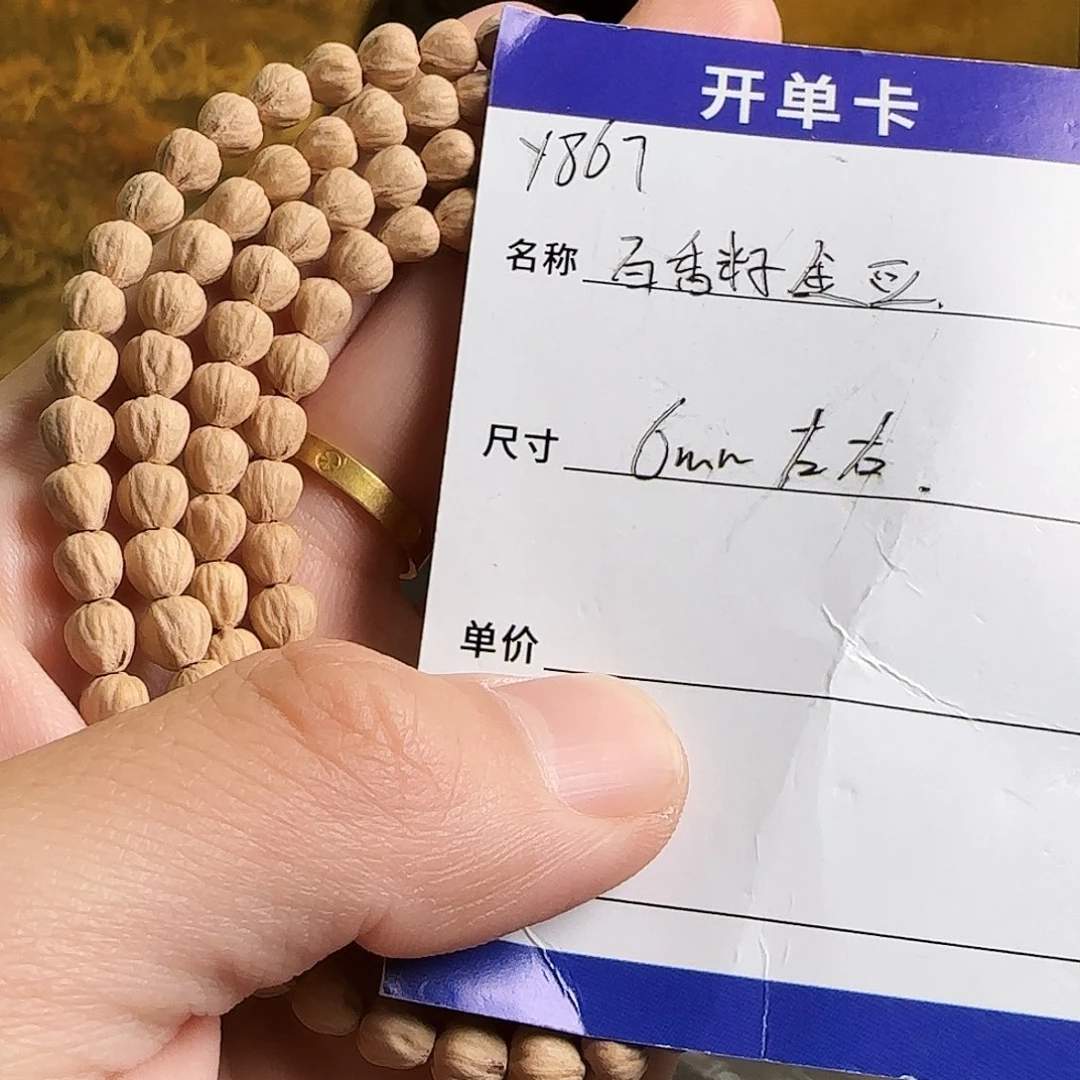 开单卡
Y867
名称 百香籽金豆.
尺寸 6mm 左右.
单价